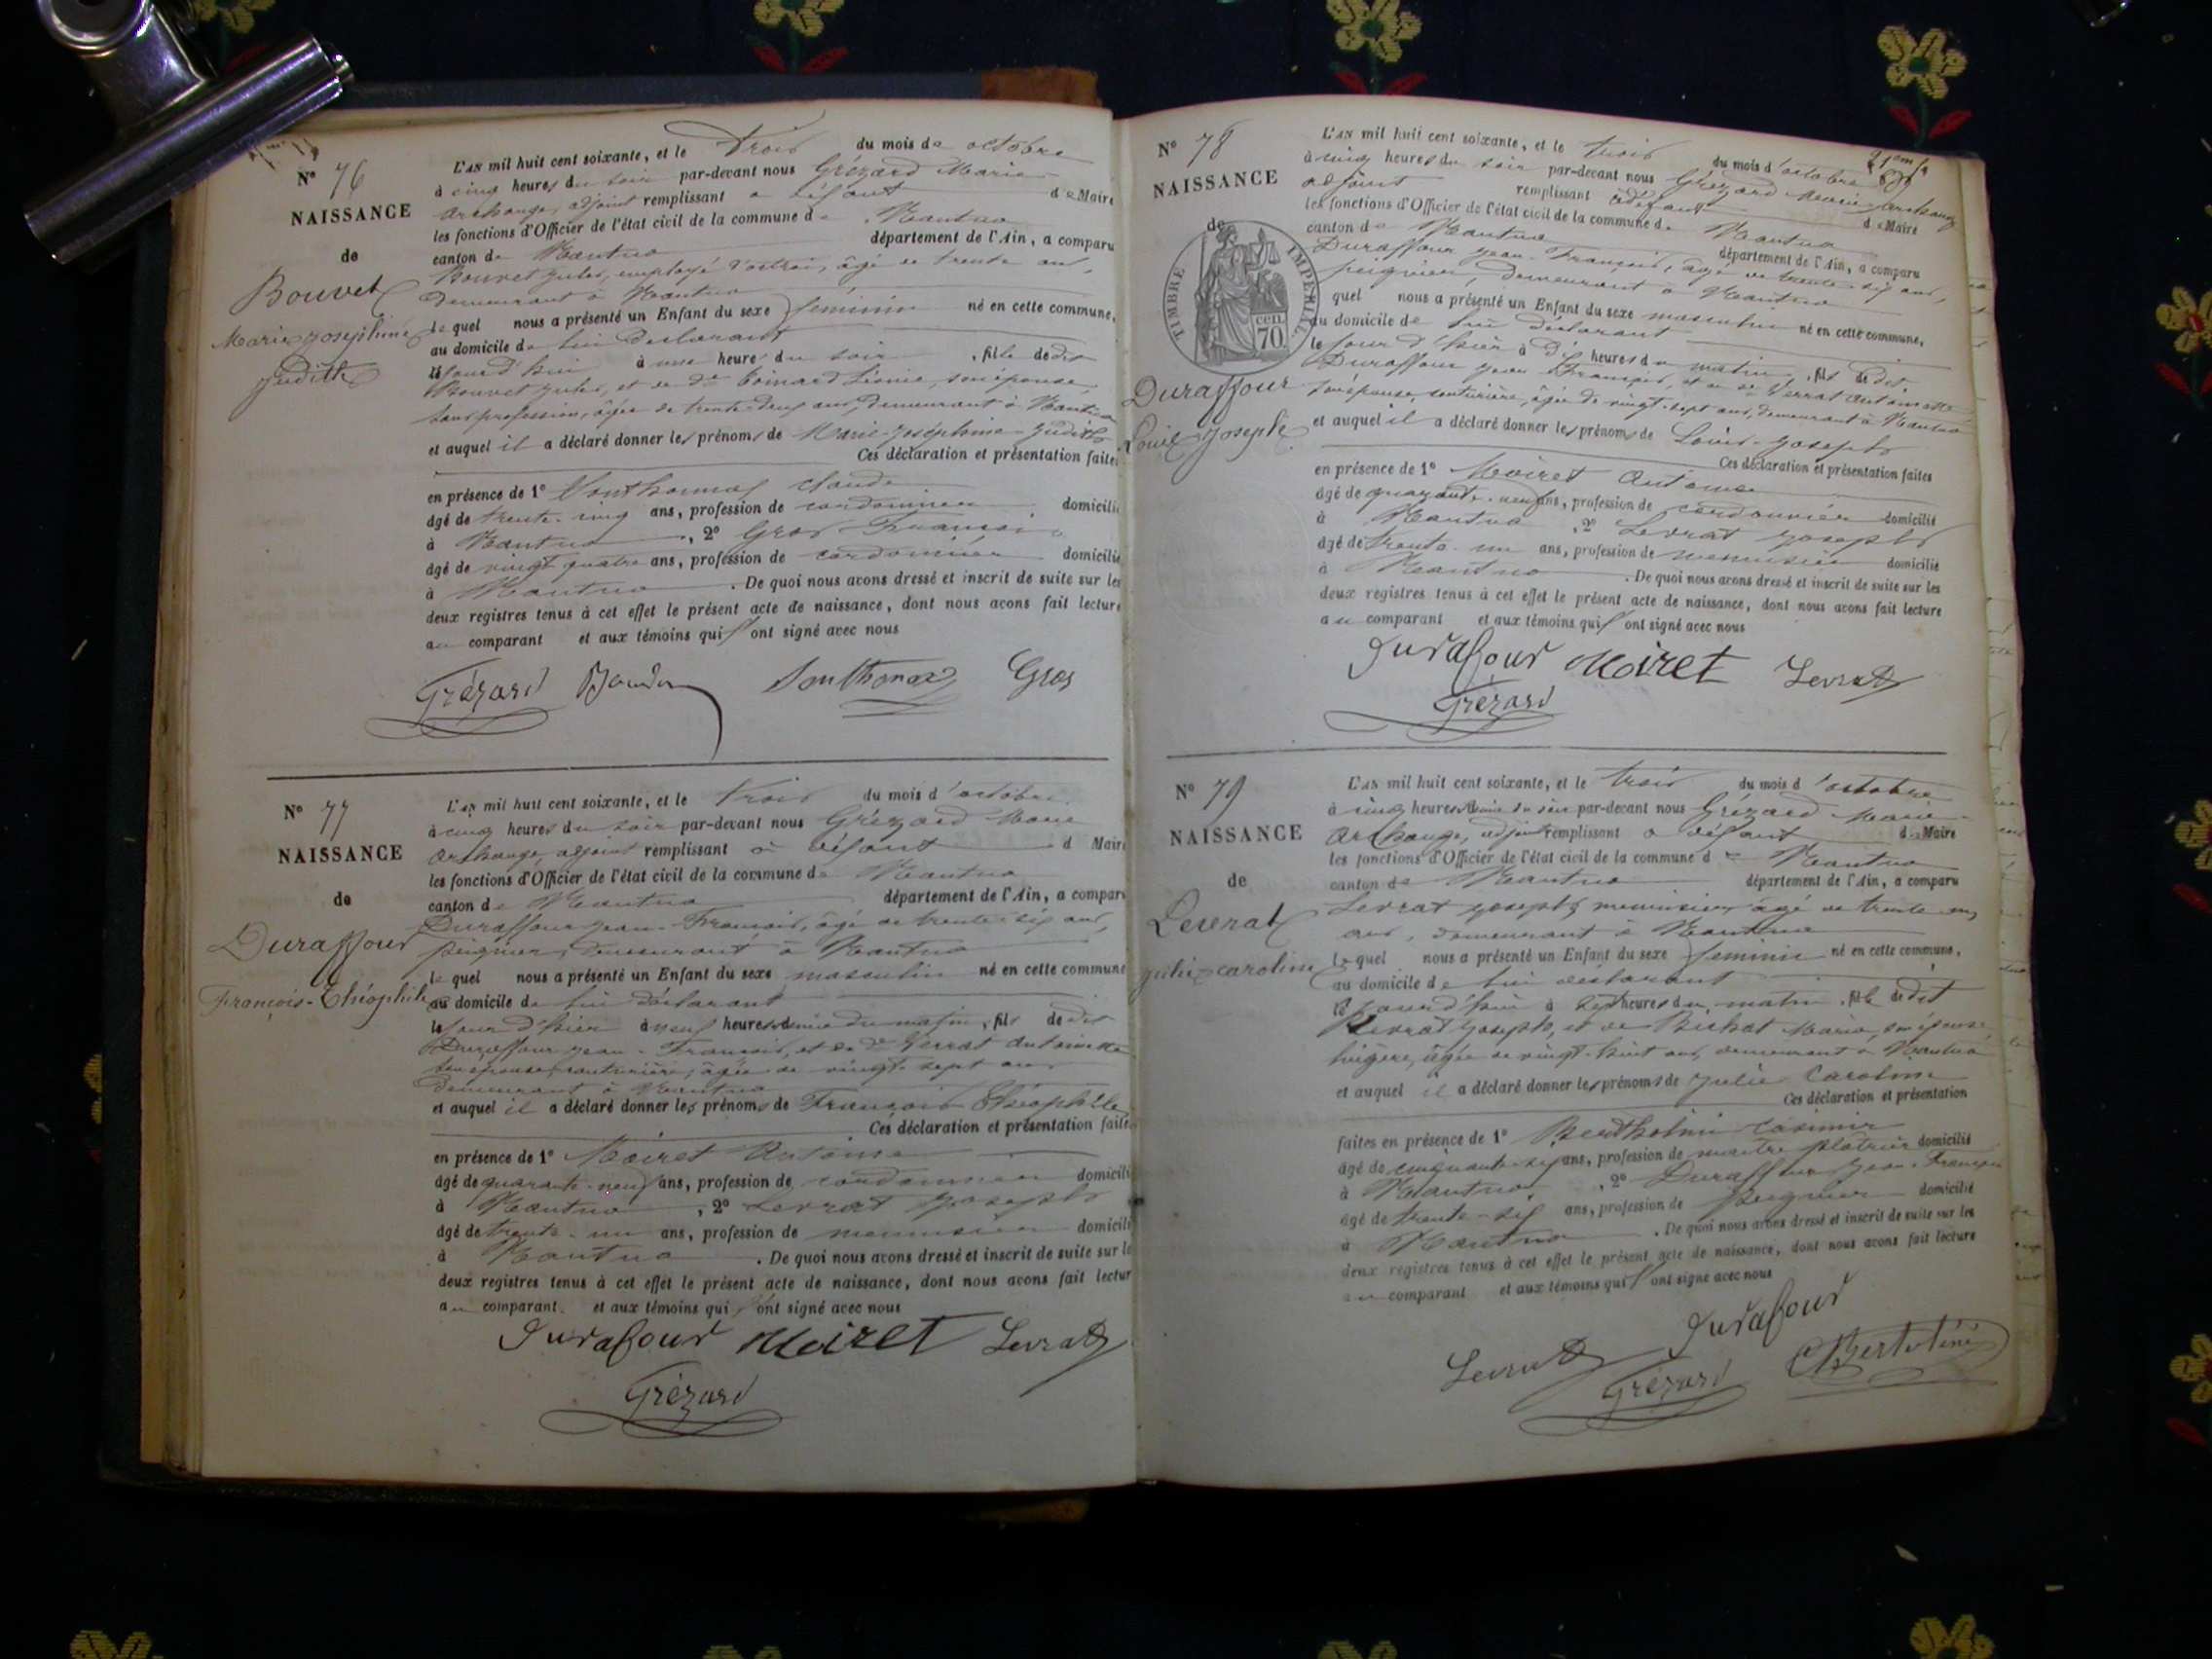 N° 76
NAISSANCE
de
Bouvet
Marie Joséphine
Judith
L'AN mil huit cent soixante, et le trois du mois de octobre
à cinq heures du soir par-devant nous Grézard Marie
Archange, adjoint remplissant à défaut de Maire
les fonctions d'Officier de l'état civil de la commune de Nantua
canton de Nantua département de l'Ain, a comparu
Bouvet Jules, employé d'octroi, âgé de trente ans,
demeurant à Nantua
lequel nous a présenté un Enfant du sexe féminin né en cette commune,
au domicile de lui déclarant
à une heure du soir, fille dudit
Bouvet Jules, et de de Léonie, son épouse,
sans profession, âgée de trente-deux ans, demeurant à Nantua
et auquel il a déclaré donner les prénoms de Marie-Joséphine-Judith
Ces déclaration et présentation faites
en présence de 1° Claude
âgé de trente-cinq ans, profession de cordonnier domicilié
à Nantua, 2° Gros François
âgé de vingt quatre ans, profession de cordonnier domicilié
à Nantua. De quoi nous avons dressé et inscrit de suite sur les
deux registres tenus à cet effet le présent acte de naissance, dont nous avons fait lecture
au comparant et aux témoins qui ont signé avec nous
Grézard Sonthonax Gros
N° 77
NAISSANCE
de
Duraffour
François-Théophile
L'AN mil huit cent soixante, et le trois du mois d'octobre
à cinq heures du soir par-devant nous Grézard Marie
Archange, adjoint remplissant à défaut d Maire
les fonctions d'Officier de l'état civil de la commune de Nantua
canton de Nantua département de l'Ain, a comparu
Duraffour Jean-François, âgé de trente-six ans,
peignier, demeurant à Nantua
lequel nous a présenté un Enfant du sexe masculin né en cette commune
au domicile de lui déclarant
le jour d'hier à neuf heures demie du matin, fils dudit
Duraffour Jean-François, et de de Verrat Antoinette
son épouse, couturière, âgée de vingt-sept ans
demeurant à Nantua
et auquel il a déclaré donner les prénoms de François Théophile
Ces déclaration et présentation faites
en présence de 1° Moiret Antoine
âgé de quarante-neuf ans, profession de cordonnier domicilié
à Nantua, 2° Levrat Joseph
âgé de trente-un ans, profession de menuisier domicilié
à Nantua. De quoi nous avons dressé et inscrit de suite sur le
deux registres tenus à cet effet le présent acte de naissance, dont nous avons fait lectur
au comparant et aux témoins qui ont signé avec nous
Durafour Moiret Levrat
Grézard
N° 78
NAISSANCE
de
TIMBRE IMPERIAL
70 cen
Duraffour
Louis Joseph
L'AN mil huit cent soixante, et le trois du mois d'octobre
à cinq heures du soir par-devant nous Grézard Marie-Archange
adjoint remplissant à défaut de Maire
les fonctions d'Officier de l'état civil de la commune de Nantua
canton de Nantua département de l'Ain, a comparu
Duraffour Jean-François, âgé de trente-six ans,
peignier, demeurant à Nantua
quel nous a présenté un Enfant du sexe masculin né en cette commune,
au domicile de lui déclarant
le jour d'hier à dix heures du matin, fils dudit
Duraffour Jean François, et de de Verrat Antoinette
son épouse, couturière, âgée de vingt-sept ans, demeurant à Nantua
et auquel il a déclaré donner les prénoms de Louis-Joseph
Ces déclaration et présentation faites
en présence de 1° Moiret Antoine
âgé de quarante-neuf ans, profession de cordonnier domicilié
à Nantua, 2° Levrat Joseph
âgé de trente-un ans, profession de menuisier domicilié
à Nantua. De quoi nous avons dressé et inscrit de suite sur les
deux registres tenus à cet effet le présent acte de naissance, dont nous avons fait lecture
au comparant et aux témoins qui ont signé avec nous
Durafour Moiret Levrat
Grézard
N° 79
NAISSANCE
de
Levrat
Julie-Caroline
L'AN mil huit cent soixante, et le trois du mois d'octobre
à cinq heures demie du soir par-devant nous Grézard Marie-
Archange, adjoint remplissant à défaut de Maire
les fonctions d'Officier de l'état civil de la commune de Nantua
canton de Nantua département de l'Ain, a comparu
Levrat Joseph, menuisier, âgé de trente-un
ans, demeurant à Nantua
lequel nous a présenté un Enfant du sexe féminin né en cette commune,
au domicile de lui déclarant
à sept heures du matin, fille dudit
Levrat Joseph, et de Marie, son épouse,
lingère, âgée de vingt-huit ans, demeurant à Nantua
et auquel il a déclaré donner les prénoms de Julie Caroline
Ces déclaration et présentation
faites en présence de 1° Casimir
âgé de cinquante-six ans, profession de maître plâtrier domicilié
à Nantua, 2° Duraffour Jean-François
âgé de trente-six ans, profession de peignier domicilié
à Nantua. De quoi nous avons dressé et inscrit de suite sur les
deux registres tenus à cet effet le présent acte de naissance, dont nous avons fait lecture
au comparant et aux témoins qui ont signé avec nous
Durafour
Levrat Grézard CBertolini